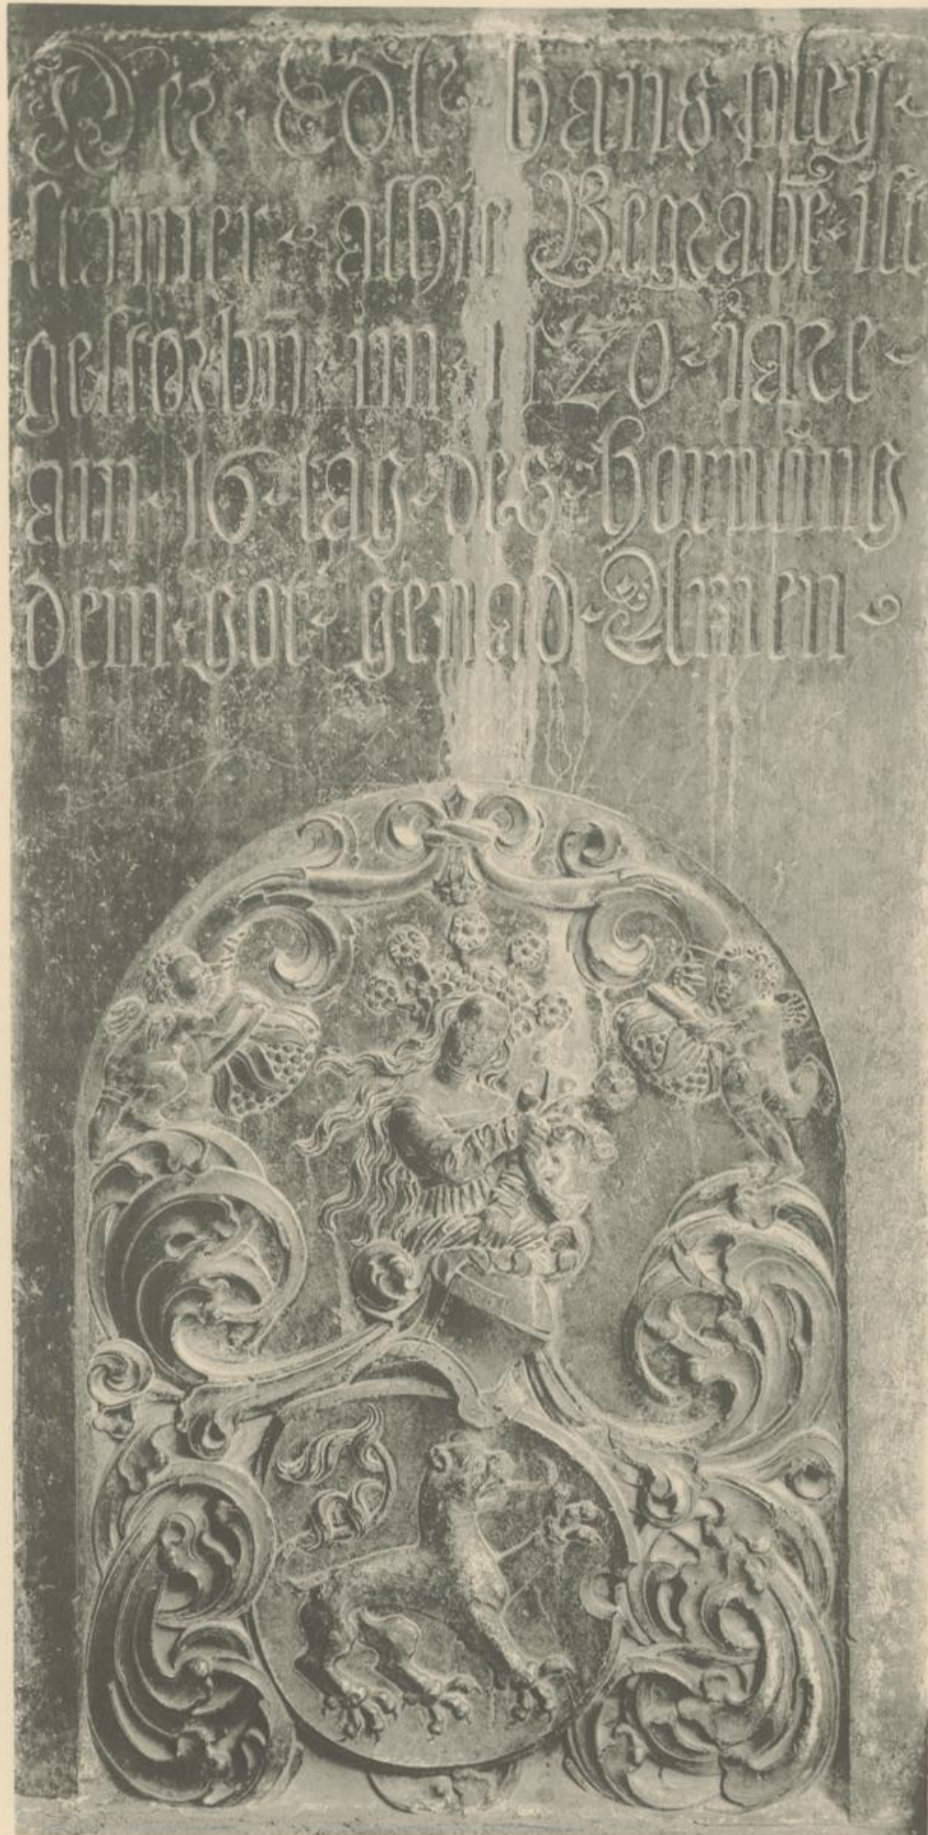 Der · Edl · hans · pley-
stainer · alhie Begrabē · ist
gestorbn̄ · im · 1520 · iare ·
am · 16 · tag · des · hornūng
dem · got · genad · Amen ·